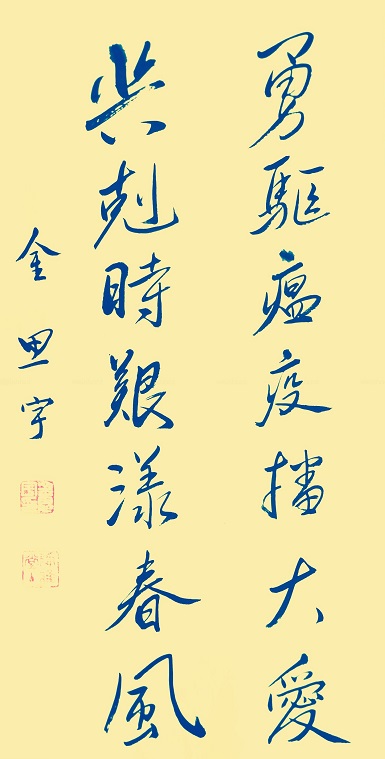 勇驅瘟疫播大愛
共剋時艱漾春風
金思宇